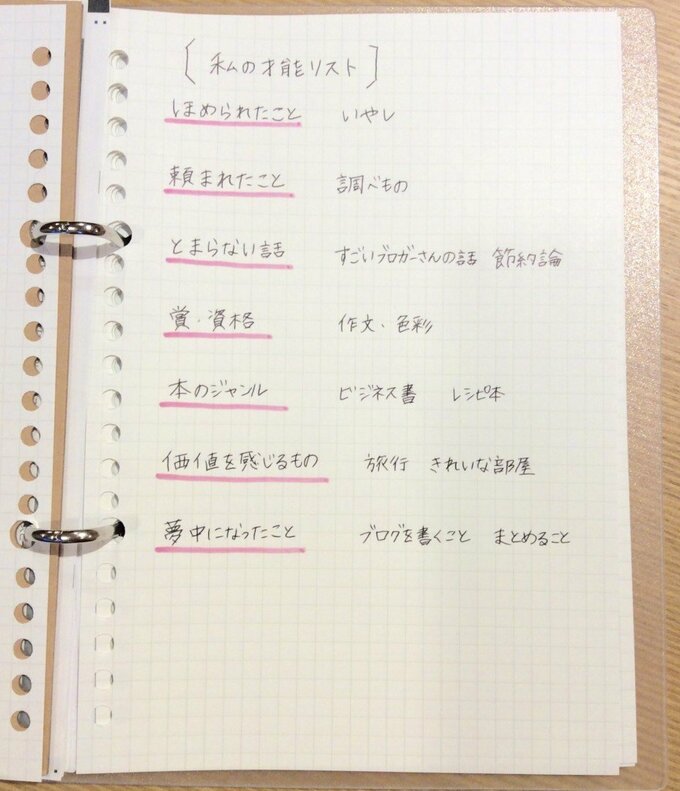 [私の才能リスト]
ほめられたこと いやし
頼まれたこと 調べもの
とまらない話 すごいブロガーさんの話 節約論
賞・資格 作文・色彩
本のジャンル ビジネス書 レシピ本
価値を感じるもの 旅行 きれいな部屋
夢中になったこと ブログを書くこと まとめること